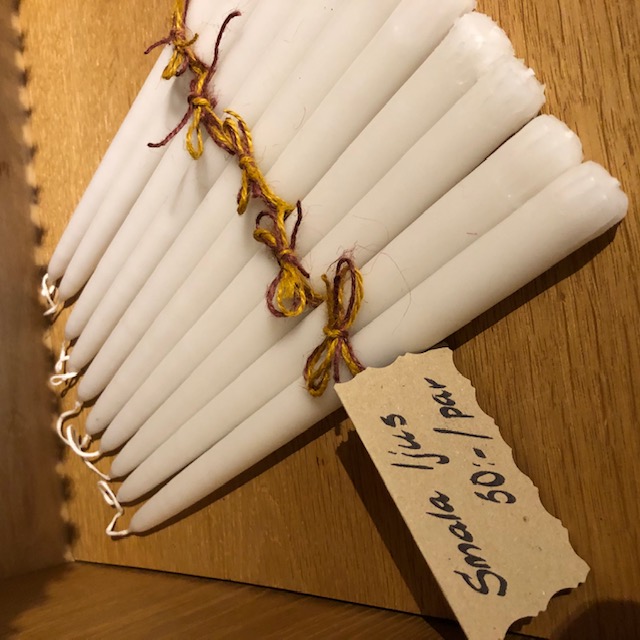 Smala ljus
50:-/par